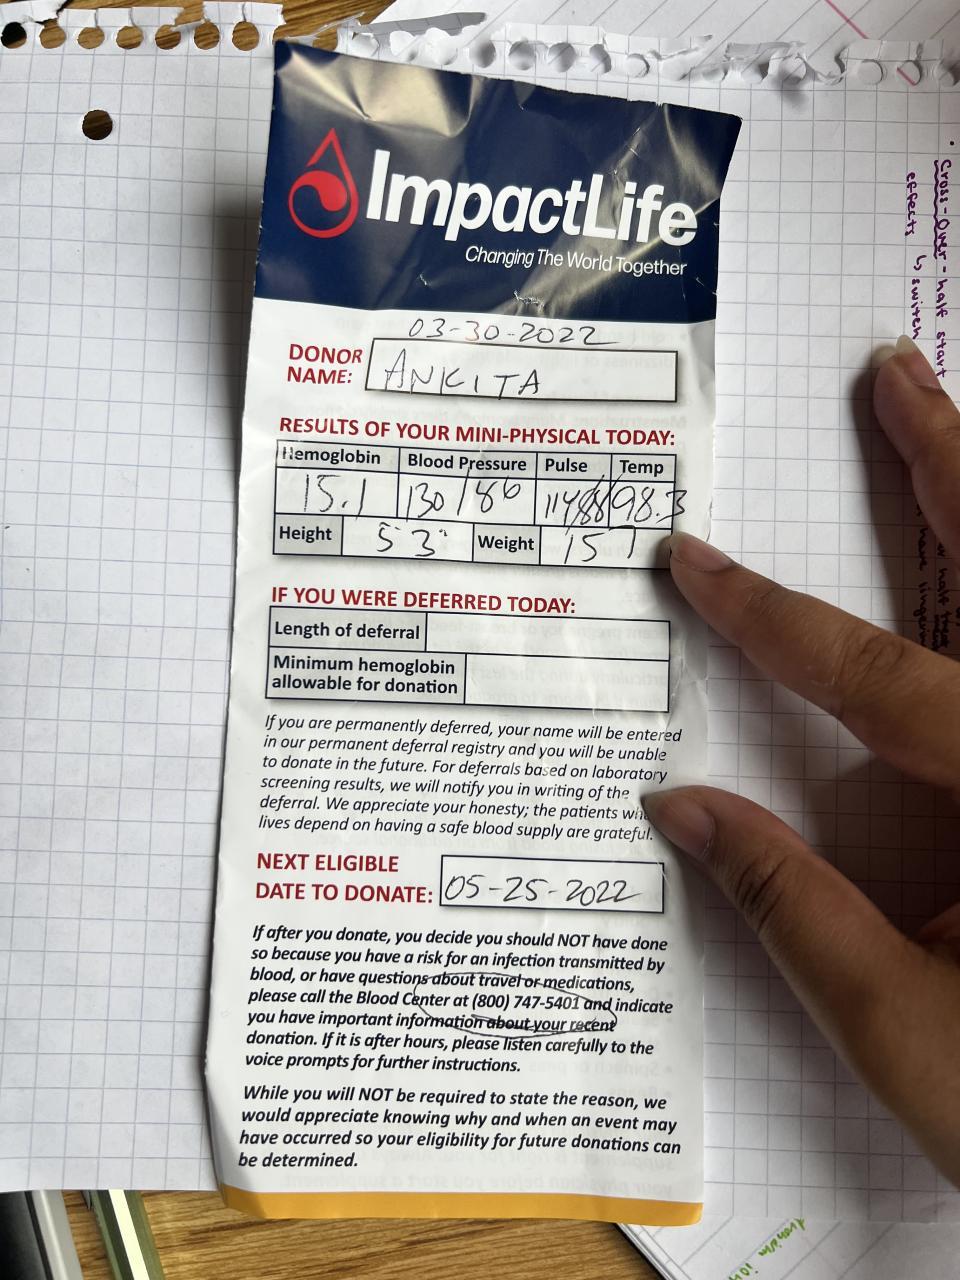 ImpactLife
Changing The World Together
03-30-2022
DONOR
NAME: ANKITA
RESULTS OF YOUR MINI-PHYSICAL TODAY:
Hemoglobin Blood Pressure Pulse Temp
15.1 130/86 114/88 98.3
Height 5 3" Weight 157
IF YOU WERE DEFERRED TODAY:
Length of deferral
Minimum hemoglobin
allowable for donation
If you are permanently deferred, your name will be entered
in our permanent deferral registry and you will be unable
to donate in the future. For deferrals based on laboratory
screening results, we will notify you in writing of the
deferral. We appreciate your honesty; the patients
lives depend on having a safe blood supply are grateful.
NEXT ELIGIBLE
DATE TO DONATE: 05-25-2022
If after you donate, you decide you should NOT have done
so because you have a risk for an infection transmitted by
blood, or have questions about travel or medications,
please call the Blood Center at (800) 747-5401 and indicate
you have important information about your recent
donation. If it is after hours, please listen carefully to the
voice prompts for further instructions.
While you will NOT be required to state the reason, we
would appreciate knowing why and when an event may
have occurred so your eligibility for future donations can
be determined.
Cross-Over - half start
effects ↳ switch